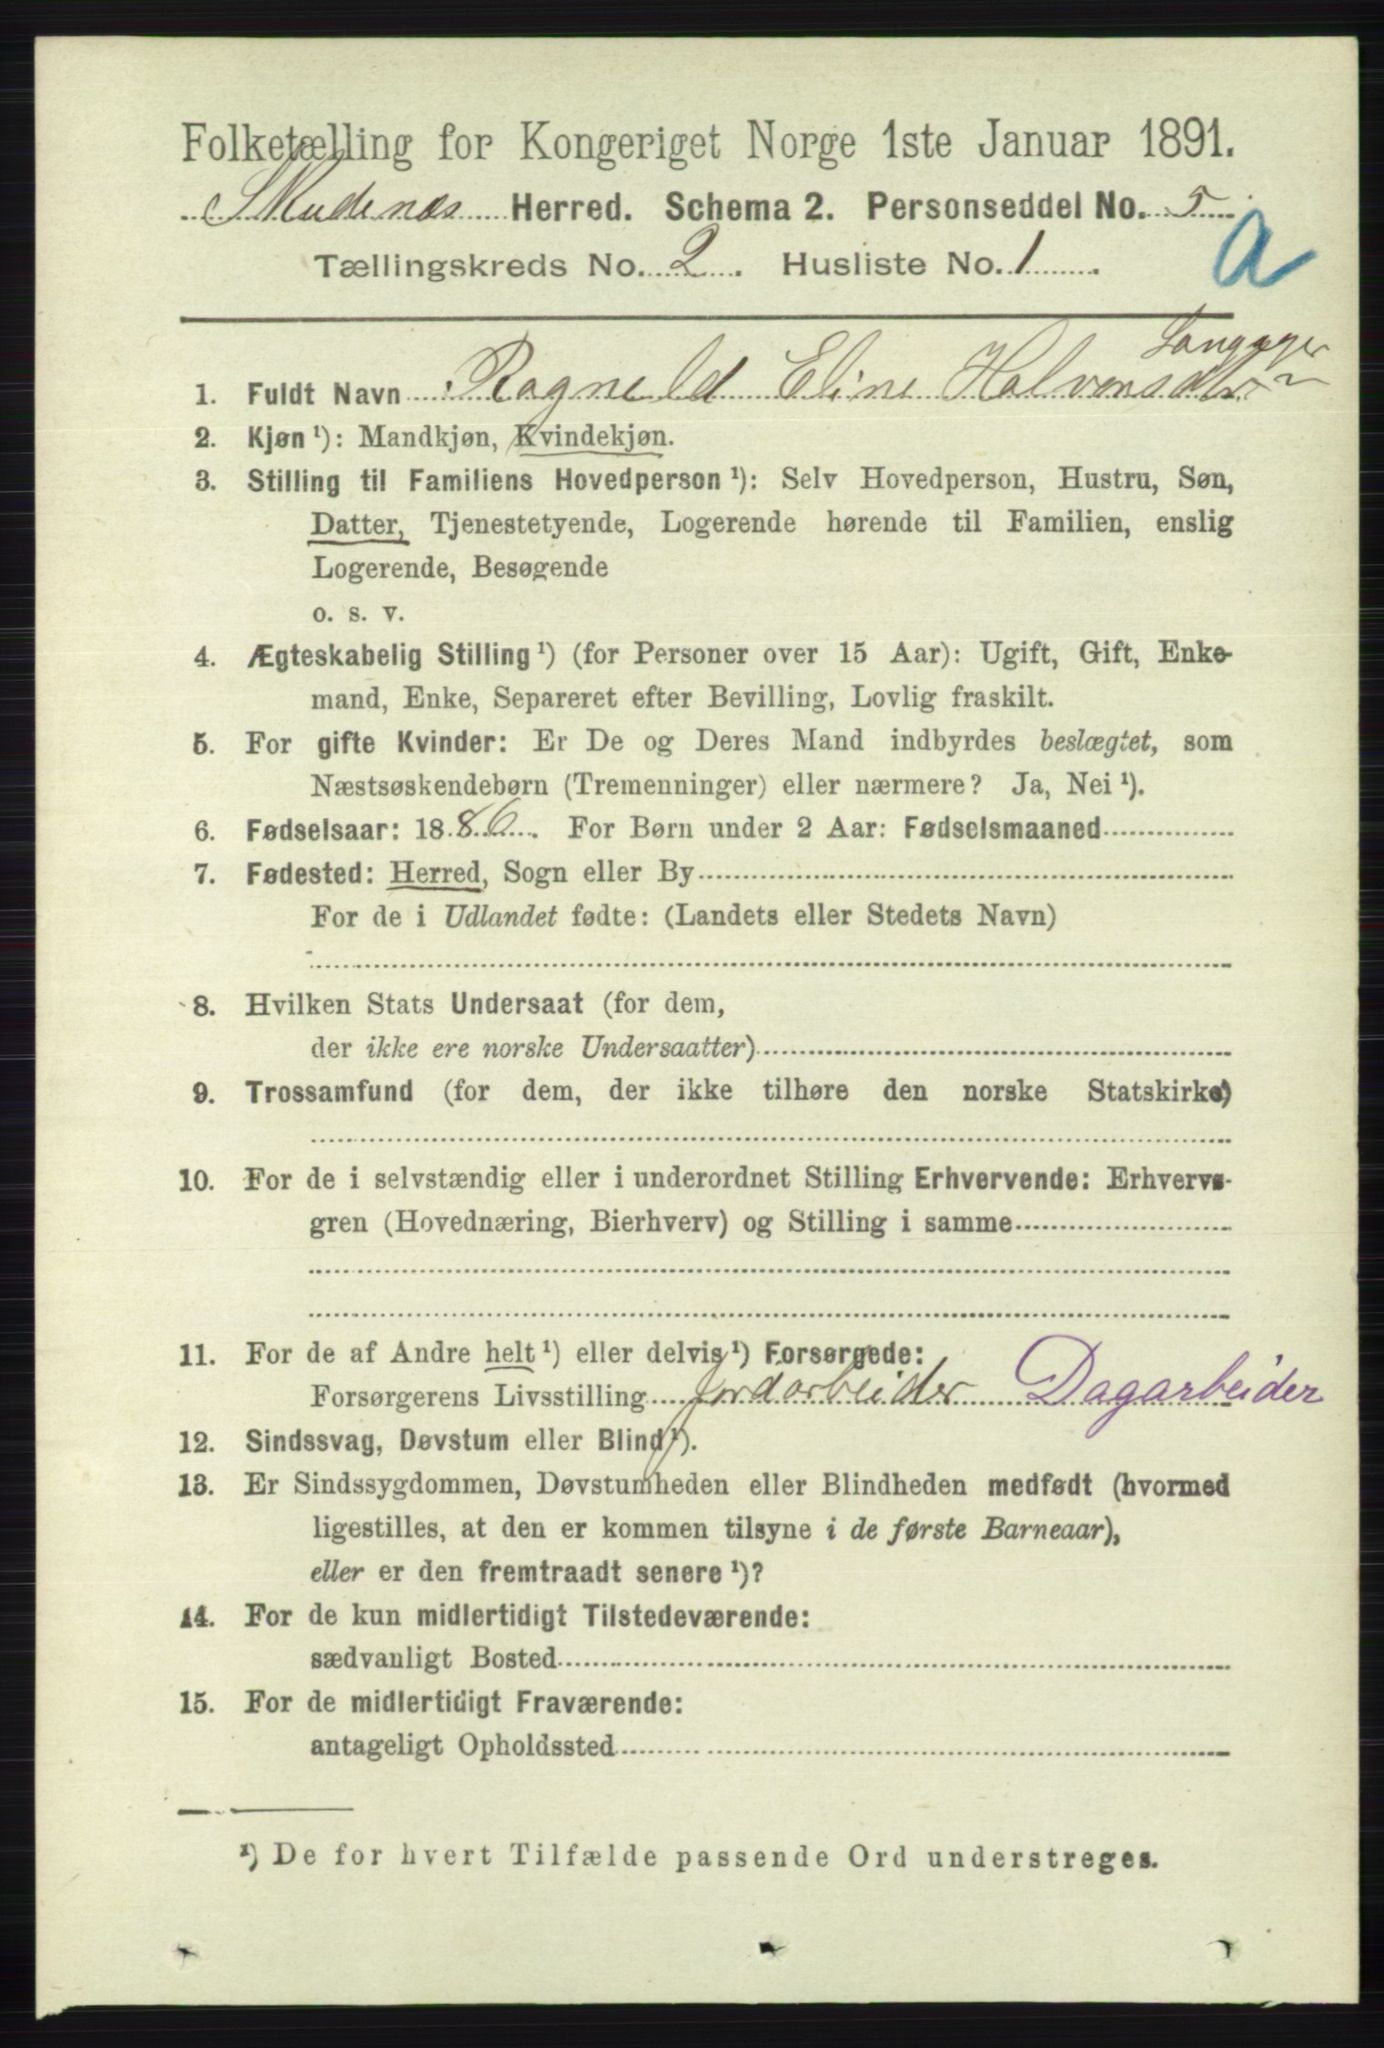 Folketælling for Kongeriget Norge 1ste Januar 1891.
Skudenæs Herred. Schema 2. Personseddel No. 5
Tællingskreds No. 2. Husliste No. 1
a
Langager
1. Fuldt Navn Ragneld Eline Halvorsdtr
2. Kjøn ¹): Mandkjøn, Kvindekjøn.
3. Stilling til Familiens Hovedperson ¹): Selv Hovedperson, Hustru, Søn,
Datter, Tjenestetyende, Logerende hørende til Familien, enslig
Logerende, Besøgende
o. s. v.
4. Ægteskabelig Stilling ¹) (for Personer over 15 Aar): Ugift, Gift, Enke-
mand, Enke, Separeret efter Bevilling, Lovlig fraskilt.
5. For gifte Kvinder: Er De og Deres Mand indbyrdes beslægtet, som
Næstsøskendebørn (Tremenninger) eller nærmere? Ja, Nei ¹).
6. Fødselsaar: 1886. For Børn under 2 Aar: Fødselsmaaned
7. Fødested: Herred, Sogn eller By
For de i Udlandet fødte: (Landets eller Stedets Navn)
8. Hvilken Stats Undersaat (for dem,
der ikke ere norske Undersaatter)
9. Trossamfund (for dem, der ikke tilhøre den norske Statskirke)
10. For de i selvstændig eller i underordnet Stilling Erhvervende: Erhvervs-
gren (Hovednæring, Bierhverv) og Stilling i samme
11. For de af Andre helt ¹) eller delvis ¹) Forsørgede:
Forsørgerens Livsstilling Jordarbeider Dagarbeider
12. Sindssvag, Døvstum eller Blind ¹).
13. Er Sindssygdommen, Døvstumheden eller Blindheden medfødt (hvormed
ligestilles, at den er kommen tilsyne i de første Barneaar),
eller er den fremtraadt senere ¹)?
14. For de kun midlertidigt Tilstedeværende:
sædvanligt Bosted
15. For de midlertidigt Fraværende:
antageligt Opholdssted
¹) De for hvert Tilfælde passende Ord understreges.